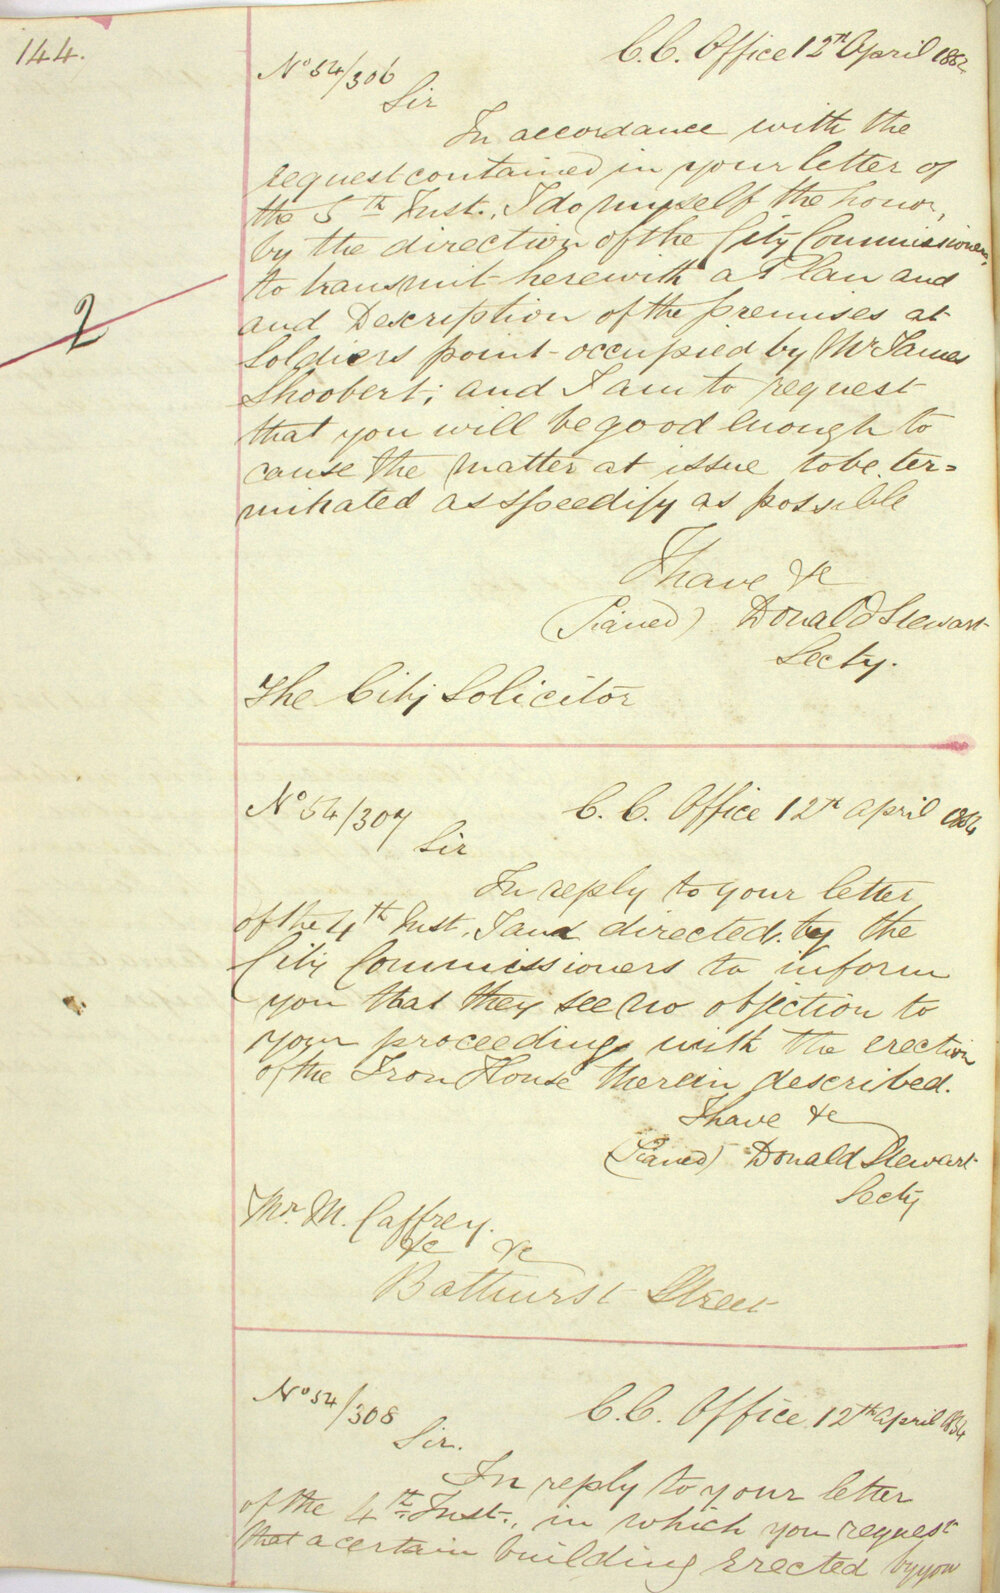 144.
C. C. Office 12th April 1854
No 54/306
Sir
In accordance with the
request contained in your letter of
the 5th Inst., I do myself the honor,
by the direction of the City Commissioners,
to transmit herewith a Plan and
and Description of the premises at
Soldiers point occupied by Mr James
Shoobert; and I am to request
that you will be good enough to
cause the matter at issue to be ter=
minated as speedily as possible
I have &c
(Signed) Donald Stewart
Secty.
The City Solicitor
2
No 54/307
C. C. Office 12th April 1854
Sir
In reply to your letter
of the 4th Inst, I am directed by the
City Commissioners to inform
you that they see no objection to
your proceeding with the erection
of the Iron House therein described.
I have &c
(Signed) Donald Stewart
Secty
Mr. M. Caffrey.
&c &c
Bathurst Street
No 54/308
C. C. Office 12th April 1854
Sir.
In reply to your letter
of the 4th Inst., in which you request
that a certain building erected by you